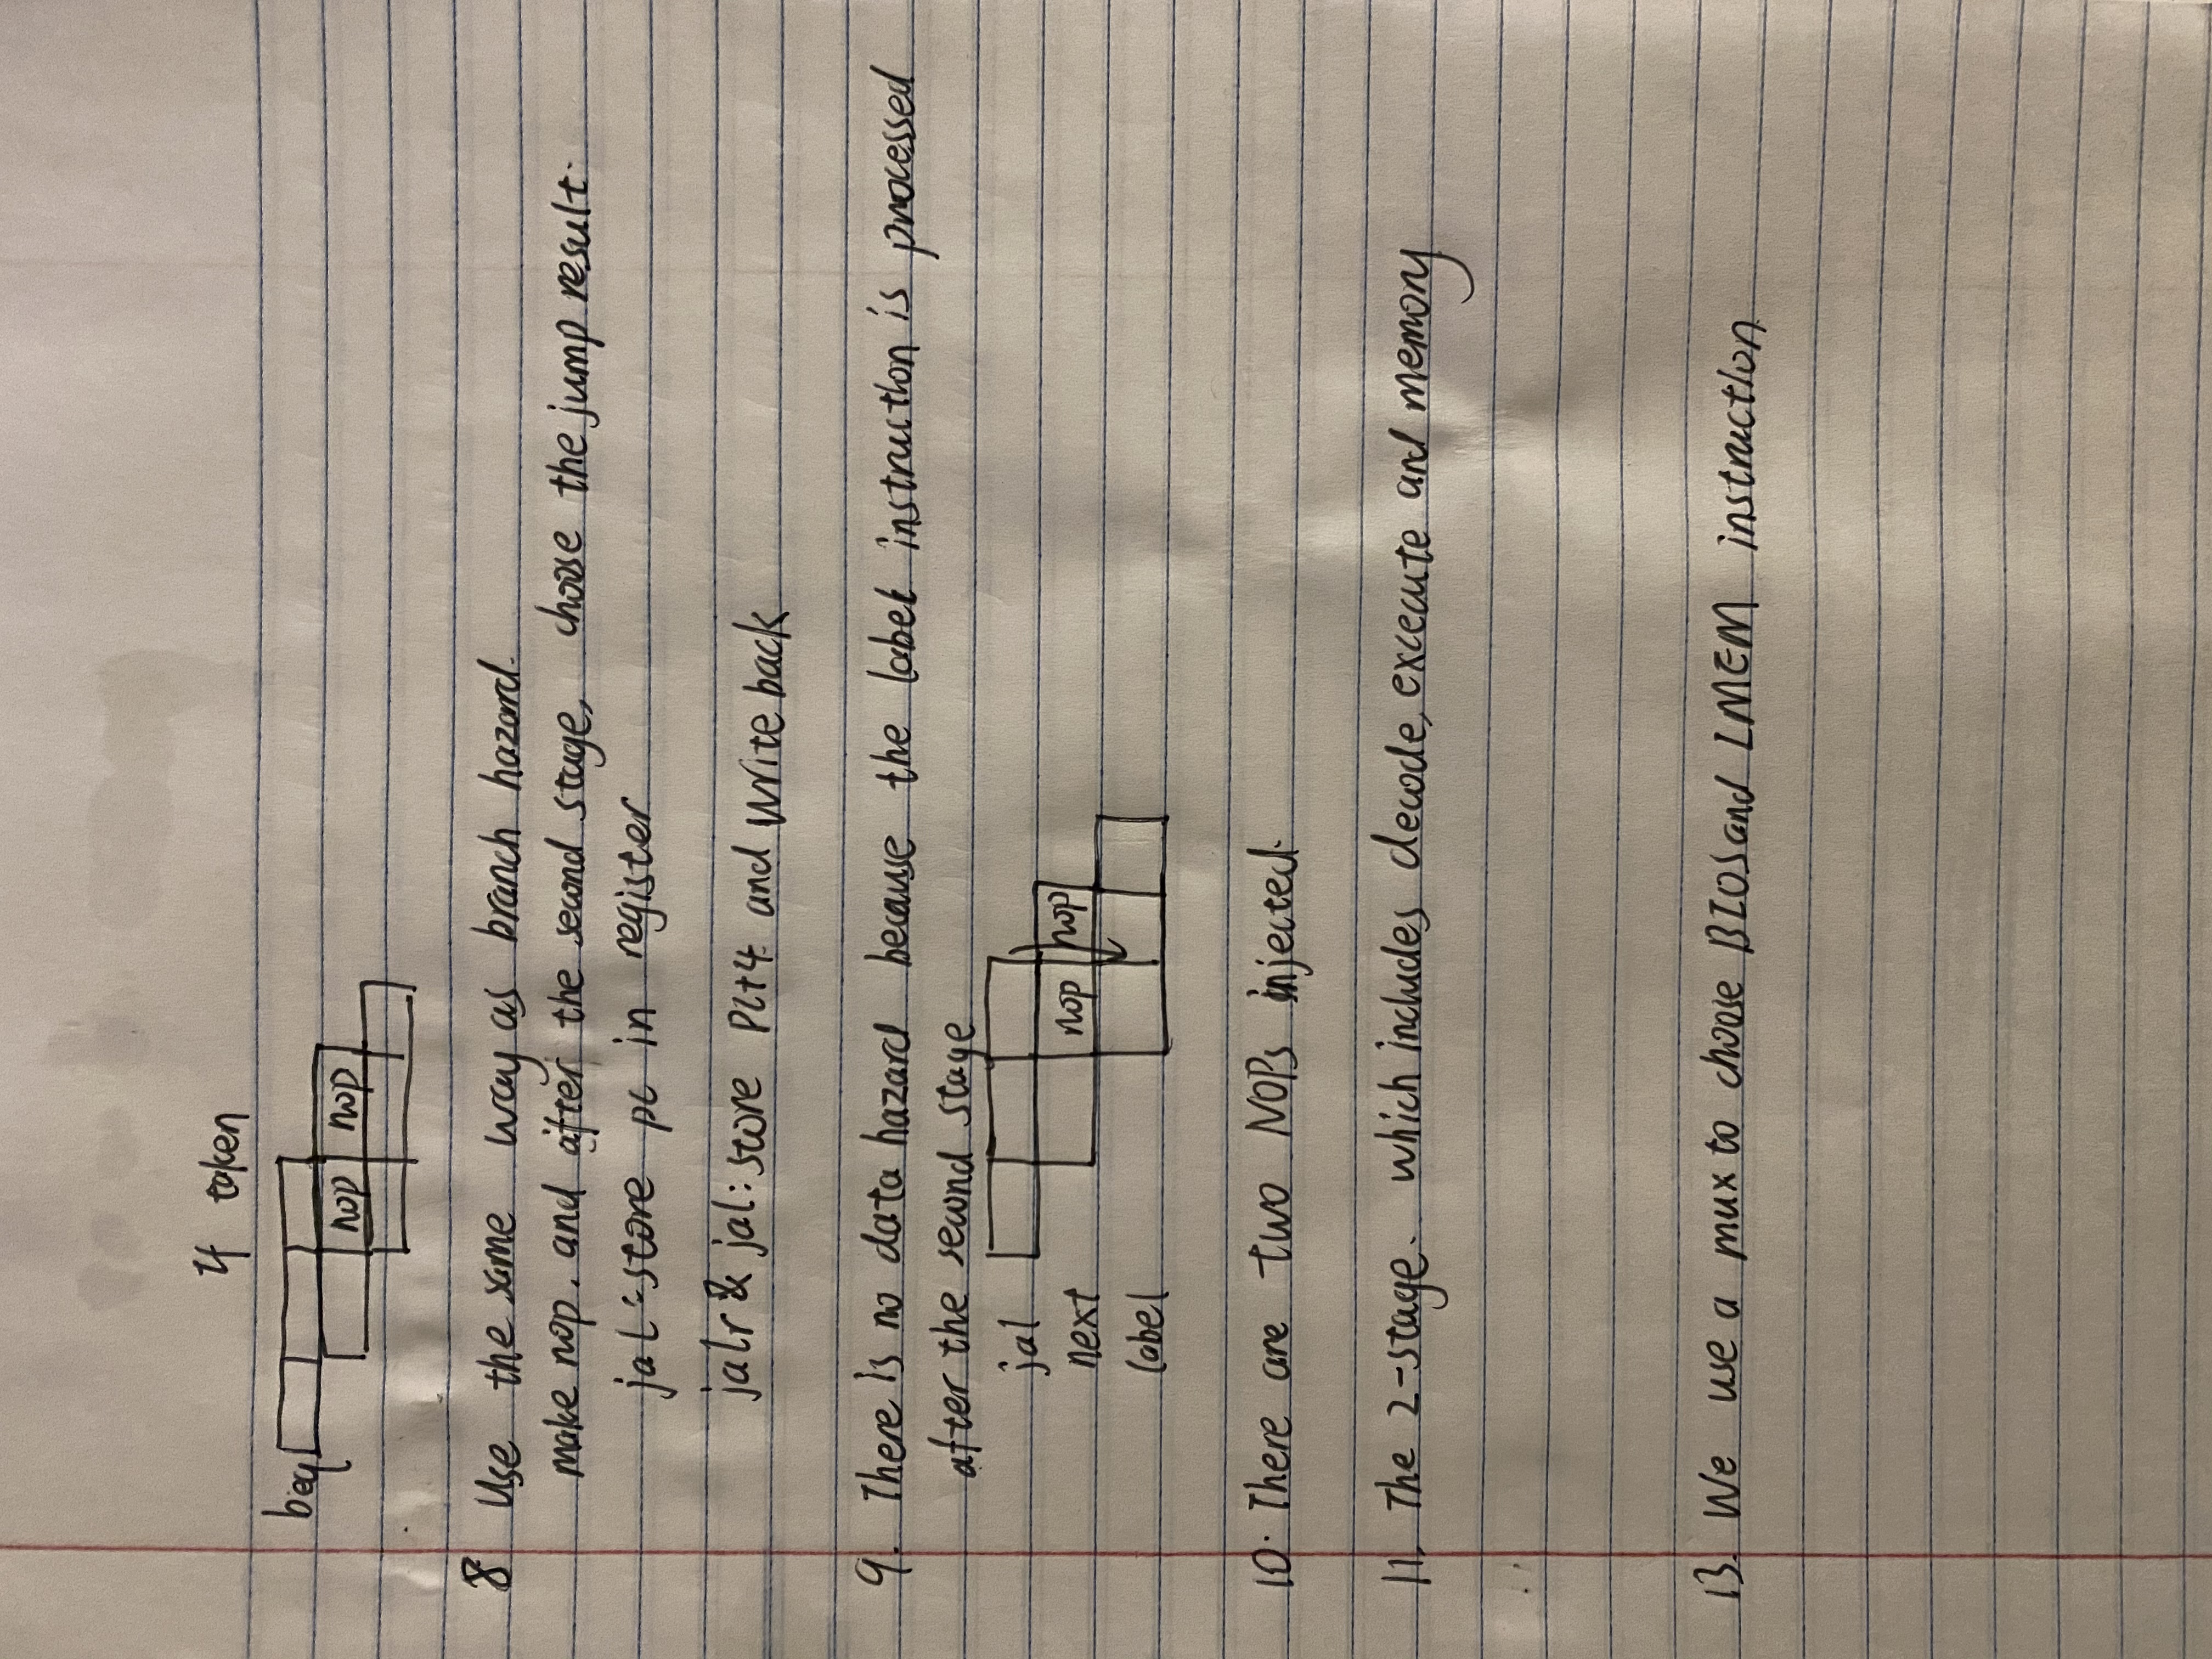 If taken
beq
nop nop
8 Use the same way as branch hazard.
make nop. and after the second stage, choose the jump result.
jal: store pc in register
jalr & jal: store PC+4 and write back
9. There is no data hazard because the label instruction is processed
after the second stage
jal
next nop nop
label
10. There are two NOPs injected.
11. The 2-stage. which includes decode, excecute and memory
13. We use a mux to choose BIOS and IMEM instruction